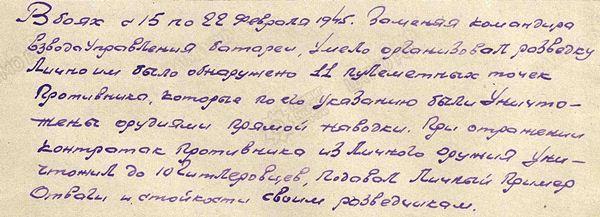 В боях с 15 по 22 февраля 1945. Заменяя командира
взвода управления батареи, умело организовал разведку
Лично им было обнаружено 11 пулеметных точек
противника, которые по его указанию были уничто-
жены орудиями прямой наводки. При отражении
контратак противника из личного оружия уни-
чтожил до 10 гитлеровцев, подавал личный пример
отваги и стойкости своим разведчикам.